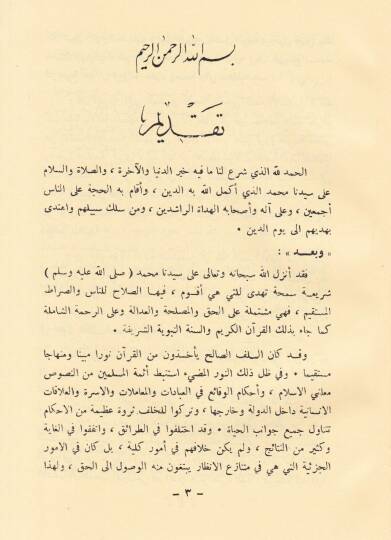 بسم الله الرحمن الرحيم
تقديم
الحمد لله الذي شرع لنا ما فيه خير الدنيا والآخرة ، والصلاة والسلام
على سيدنا محمد الذي أكمل الله به الدين ، وأقام به الحجة على الناس
أجمعين ، وعلى آله وأصحابه الهداة الراشدين ، ومن سلك سبيلهم واهتدى
بهديهم الى يوم الدين .
« وبعـد » :
فقد أنزل الله سبحانه وتعالى على سيدنا محمد ( صلى الله عليه وسلم )
شريعـة سمحة تهدى للتي هي أقـوم ، فيهـا الصلاح للناس والصراط
المستقيم ، فهي مشتملة على الحق والمصلحة والعدالة وعلى الرحمة الشاملة
كما جاء بذلك القرآن الكريم والسنة النبوية الشريفة .
وقـد كان السلف الصالح يأخـذون من القرآن نورا مبينا ومنهاجا
مستقيما . وفي ظل ذلك النور المضيء استنبط أئمة المسلمين من النصوص
معاني الاسلام ، وأحكام الوقائع في العبادات والمعاملات والاسرة والعلاقات
الانسانية داخل الدولة وخارجها ، وتركوا للخلف ثروة عظيمة من الاحكام
تتناول جميع جوانب الحياة . وقد اختلفوا في الطرائق ، واتفقوا في الغاية
وكثير من النتائج ، ولم يكن خلافهم في أمور كلية ، بل كان في الامور
الجزئية التي هي في متنازع الانظار يبتغون منه الوصول الى الحق ، ولهذا
– ٣ –